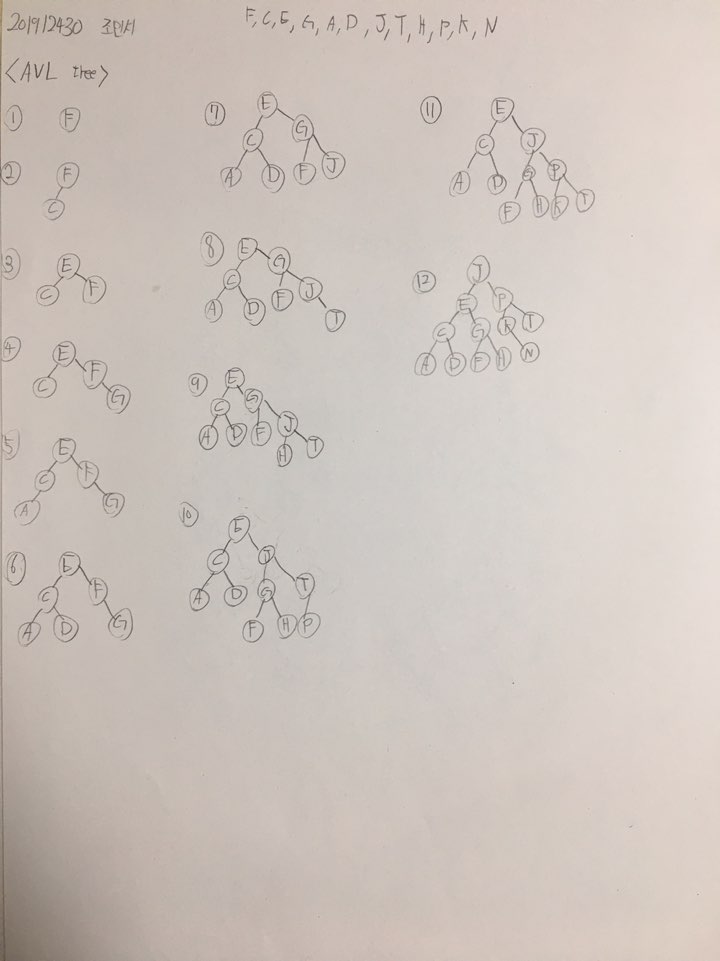 201912430
F, C, E, G, A, D, J, T, H, P, K, N
<AVL tree>
① F
② F
C
③ E
C F
④ E
C F
G
⑤ E
C F
A G
⑥ E
C F
A D G
⑦ E
C G
A D F J
⑧ E
C G
A D F J
T
⑨ E
C G
A D F J
H T
⑩ E
C J
A D G T
F H P
⑪ E
C J
A D G P
F H K T
⑫ J
E P
C G K T
A D F H N